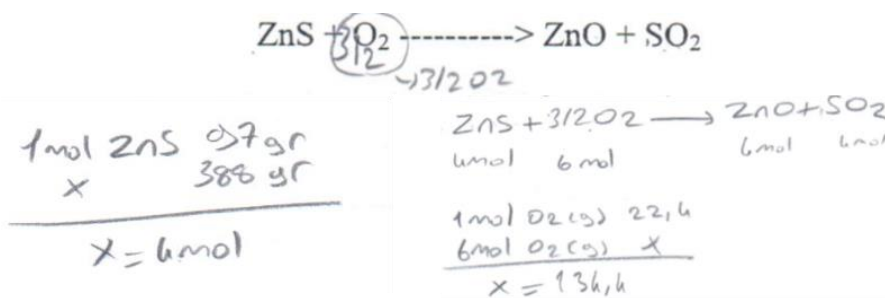 ZnS + 3/2 O₂ ----------> ZnO + SO₂
→3/2O2
1mol ZnS 97gr
x 388 gr
x = 4mol
ZnS + 3/2O2 → ZnO+SO2
4mol 6mol 4mol 4mol
1mol O2(g) 22,4
6mol O2(g) x
x = 134,4